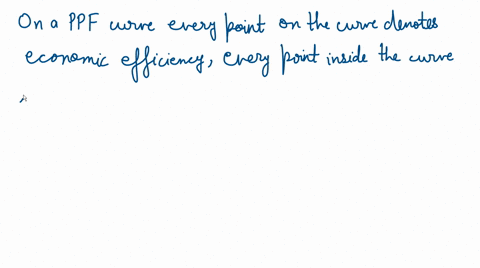 On a PPF curve every point on the curve denotes
economic efficiency, every point inside the curve